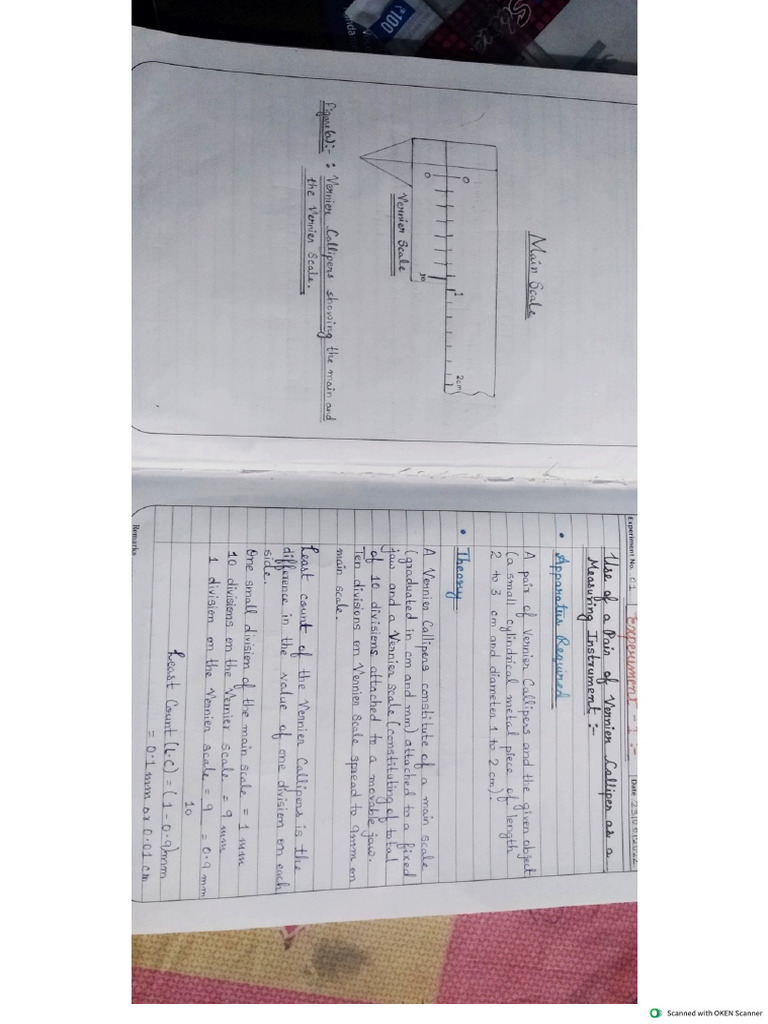 Main Scale
0
1
2cm
0
10
Vernier Scale
Figure(a):- : Vernier Callipers showing the main and
the Vernier Scale.
Experiment No. 01
Experiment - 1 :-
Date
Use of a Pair of Vernier Calliper as a
Measuring Instrument :-
• Apparatus Required
A pair of Vernier Callipers and the given object
(a small cylindrical metal piece of length
2 to 3 cm and diameter 1 to 2 cm).
• Theory
A Vernier Callipers constitute of a main scale
(graduated in cm and mm) attached to a fixed
jaw and a Vernier scale (constituting of total
of 10 divisions attached to a movable jaw.
Ten divisions on Vernier Scale spread to 9mm on
main scale.
Least count of the Vernier Callipers is the
difference in the value of one division on each
side.
One small division of the main scale = 1 mm
10 divisions on the Vernier scale = 9 mm
1 division on the Vernier scale = 9 = 0.9 mm
10
Least Count (L.C) = (1 - 0.9)mm
= 0.1 mm or 0.01 cm
Remarks
100
Scanned with OKEN Scanner